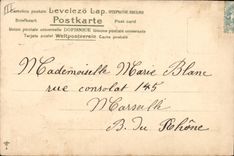 Levelező Lap.
Briefkaart Postkarte Post card
Union postale universelle Unione postale universale
Tarjeta postal Weltpostverein Carte postale
Mademoiselle Marie Blanc
rue consolat 145
Marseille
B. du Rhône